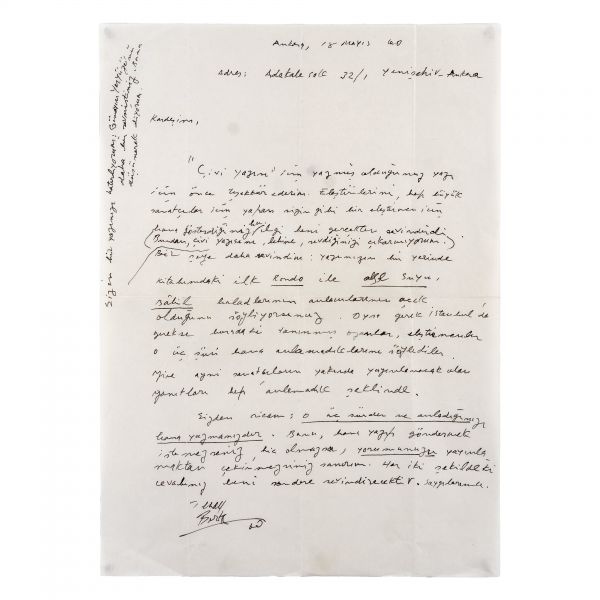 Ankara, 18 Mayıs 60
Adres: Adakale sok 32/1 Yenişehir-Ankara
Kardeşim,
"Çivi Yazısı" için yazmış olduğunuz yazı
için önce teşekkür ederim. Eleştirilerini, hep büyük
sanatçılar için yapan sizin gibi bir eleştirmen için
bana gösterdiğiniz bu ilgi beni gerçekten sevindirdi
(Bundan, Çivi yazısını, sevdiğinizi çıkarmıyorum.)
Bir şeye daha sevindim: yazınızın bir yerinde
kitabımdaki ilk Rondo ile Suyu,
Sahil baladlarının anlamlarının açık
olduğunu söylüyorsunuz. Oysa gerek İstanbul'da
gerekse buradaki tanınmış ozanlar, eleştirmenler
o üç şiiri bana anlamadıklarını söylediler.
Yine aynı sanatçıların yakında yayınlanacak olan
yanıtları hep 'anlamadık' şeklinde.
Sizden ricam: o üç şiirden ne anladığınızı
bana yazmanızdır. Bunu, bana yazıp göndermek
istemezseniz, hiç olmazsa, yorumunuzu yayınla
maktan çekinmezsiniz sanırım. Her iki şekildeki
cevabınız beni sevindirecektir. Saygılarımla.
60
Sizin bir yazınızı hatırlıyorum:
daha bir
düşünerek diyorum.